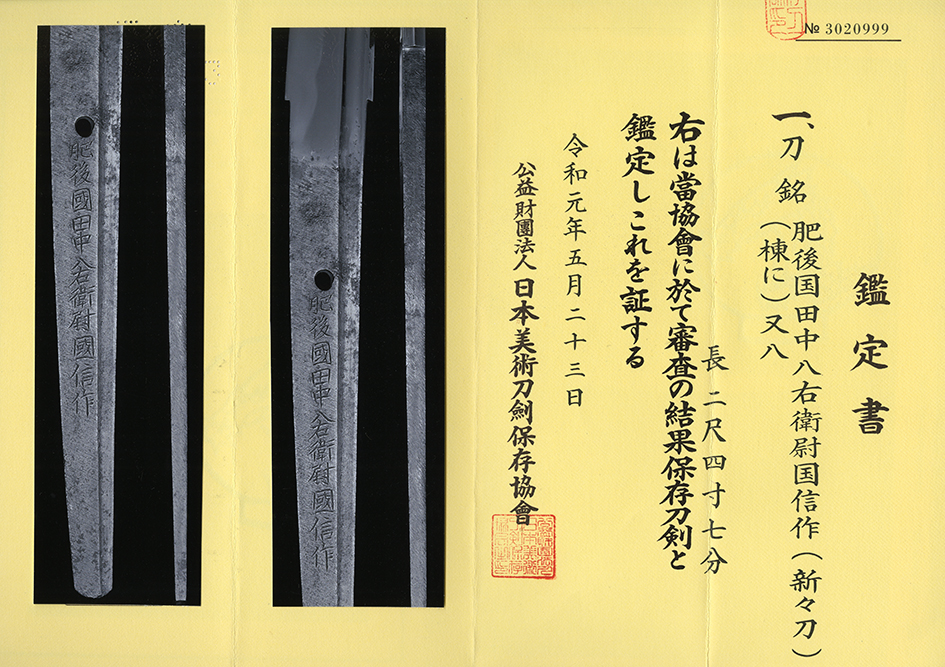 № 3020999
鑑定書
一、刀 銘 肥後国田中八右衛尉国信作(新々刀)
(棟に)又八
長二尺四寸七分
右は當協會に於て審査の結果保存刀剣と
鑑定しこれを証する
令和元年五月二十三日
公益財團法人 日本美術刀劍保存協會
肥後國田中八右衛尉國信作
肥後國田中八右衛尉國信作